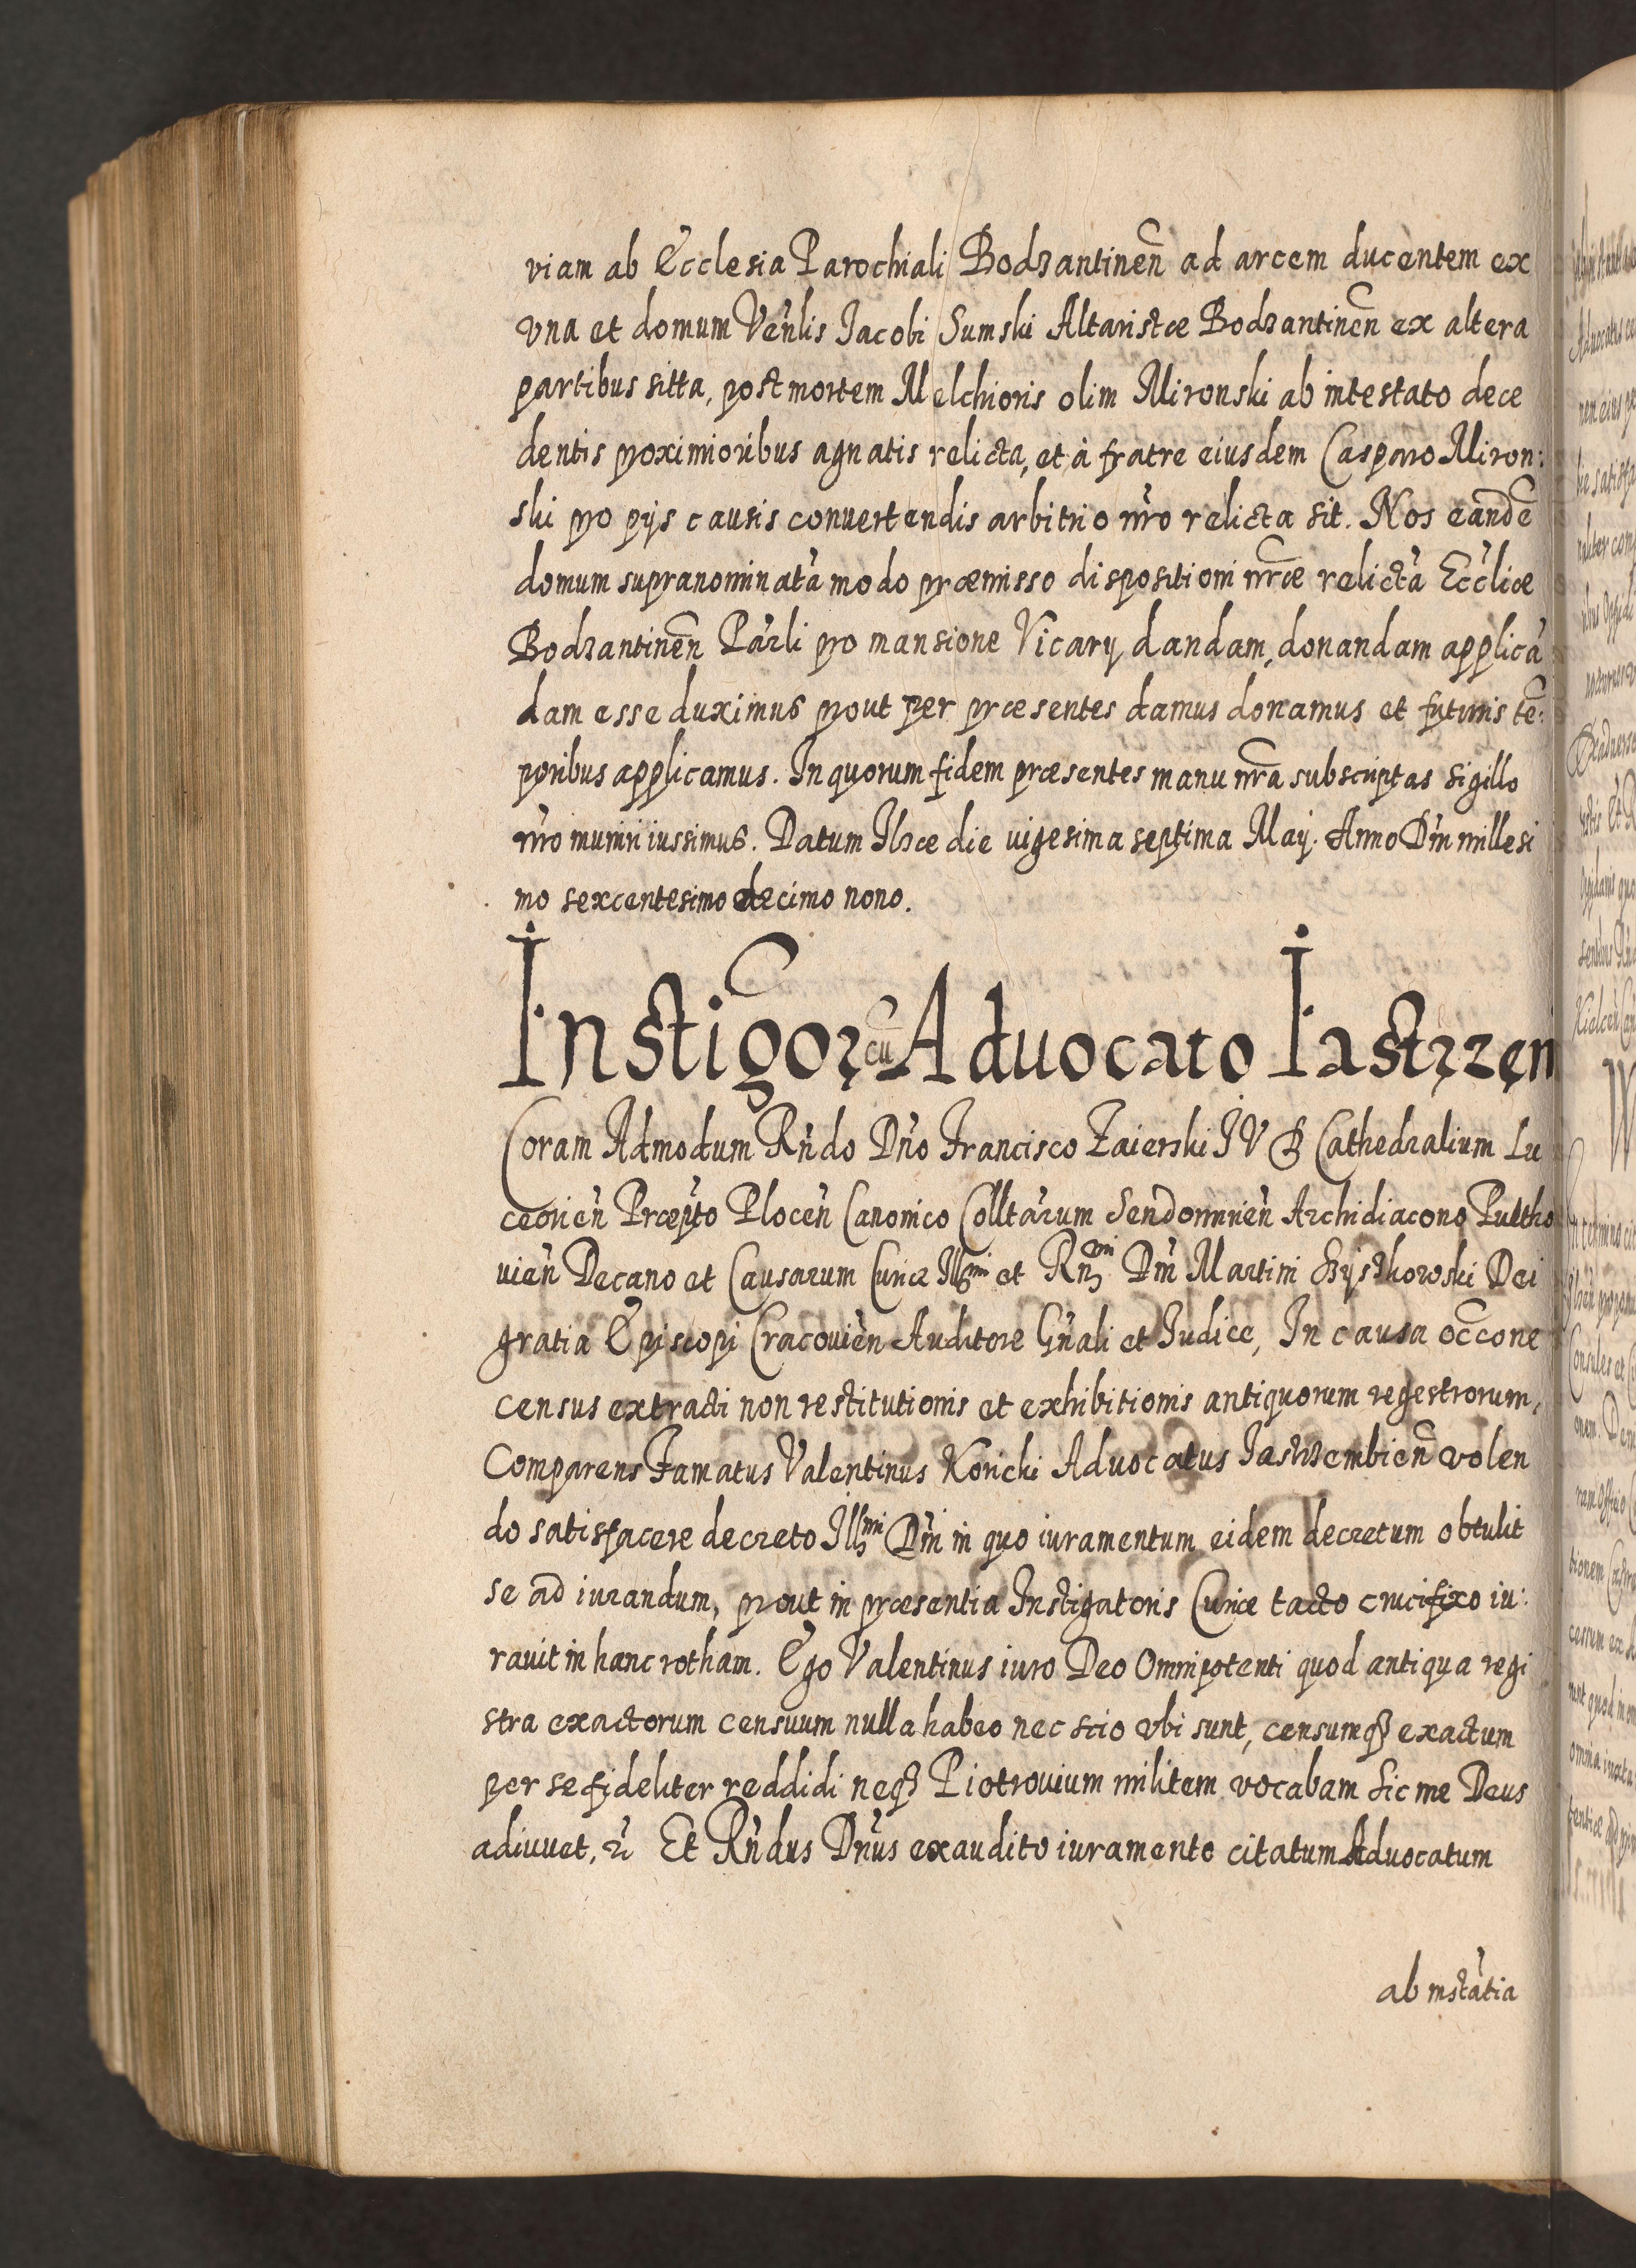 viam ab Ecclesia Parochiali Bodzantinen̄ ad arcem ducentem ex
vna et domum Ven̄lis Jacobi Sumski Altaristæ Bodzantinen̄ ex altera
partibus sitta, post mortem Melchioris olim Mironski ab intestato dece
dentis proximioribus agnatis relicta, et à fratre eiusdem Casparo Miron:
ski pro pijs causis conuertendis arbitrio nr̄o relicta sit. Nos eandē
domum supranominatā modo præmisso dispositioni nr̄æ relictā Eccl̄iæ
Bodzantinen̄ Par̄li pro mansione Vicarij dandam, donandam applicā
dam esse duximus prout per præsentes damus donamus et futuris tē:
poribus applicamus. In quorum fidem præsentes manu nr̄a subscriptas sigillo
nr̄o muniri iussimus. Datum Ilzæ die vigesima septima Maij. Anno Dn̄i millesi
mo sexcentesimo decimo nono.
Instigor cū Aduocato Iastrzem
Coram Admodum Rn̄do Dn̄o Francisco Zaierski I V D Cathedralium Lu
ceorien̄ Præp̄to Plocen̄ Canonico Colltārum Sendomirien̄ Archidiacono Pultho
uien̄ Decano et Causarum Curiæ Illmi et Rnmi Dn̄i Martini Szyszkowski Dei
gratia Episcopi Cracouien̄ Auditore Gn̄ali et Iudice, In causa occ̄one
census extracti non restitutionis et exhibitionis antiquorum regestrorum,
Comparens Famatus Valentinus Koricki Aduocatus Iastrzembien̄ volen
do satisfacere decreto Illmi Dn̄i in quo iuramentum eidem decretum obtulit
se ad iurandum, prout in præsentia Instigatoris Curiæ tacto crucifixo iu:
rauit in hanc rotham. Ego Valentinus iuro Deo Omnipotenti quod antiqua regi
stra exactorum censuum nulla habeo nec scio vbi sunt, censumq3 exactum
per se fideliter reddidi neq3 Piotrouium militem vocabam sic me Deus
adiuuet, &c̄ Et Rn̄dus Dn̄us exaudito iuramento citatum Aduocatum
ab instātia